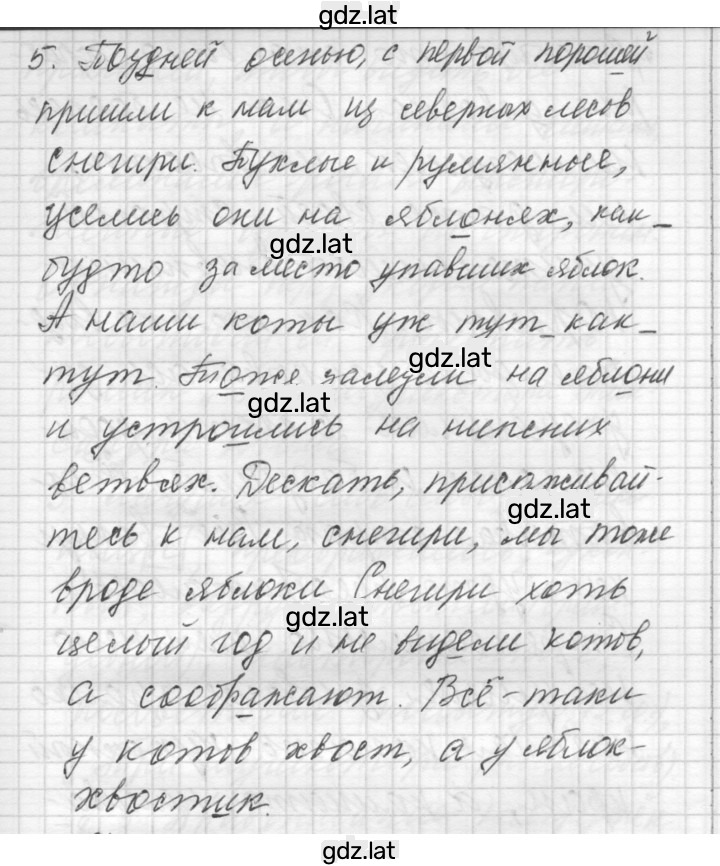 gdz.lat
5. Поздней осенью, с первой порошей²
пришли к нам из северных лесов
снегири. Пухлые и румяные,
уселись они на яблонях, как_
gdz.lat
будто заместо упавших яблок.
А наши коты уж тут_как_
gdz.lat
тут. Тоже залезли на яблони
gdz.lat
и устроились на нижних
ветвях. Дескать, присаживай-
gdz.lat
тесь к нам, снегири, мы тоже
вроде яблоки Снегири хоть
gdz.lat
целый год и не видели котов,
а соображают. Всё-таки
у котов хвост, а у яблок-
хвостик.
gdz.lat